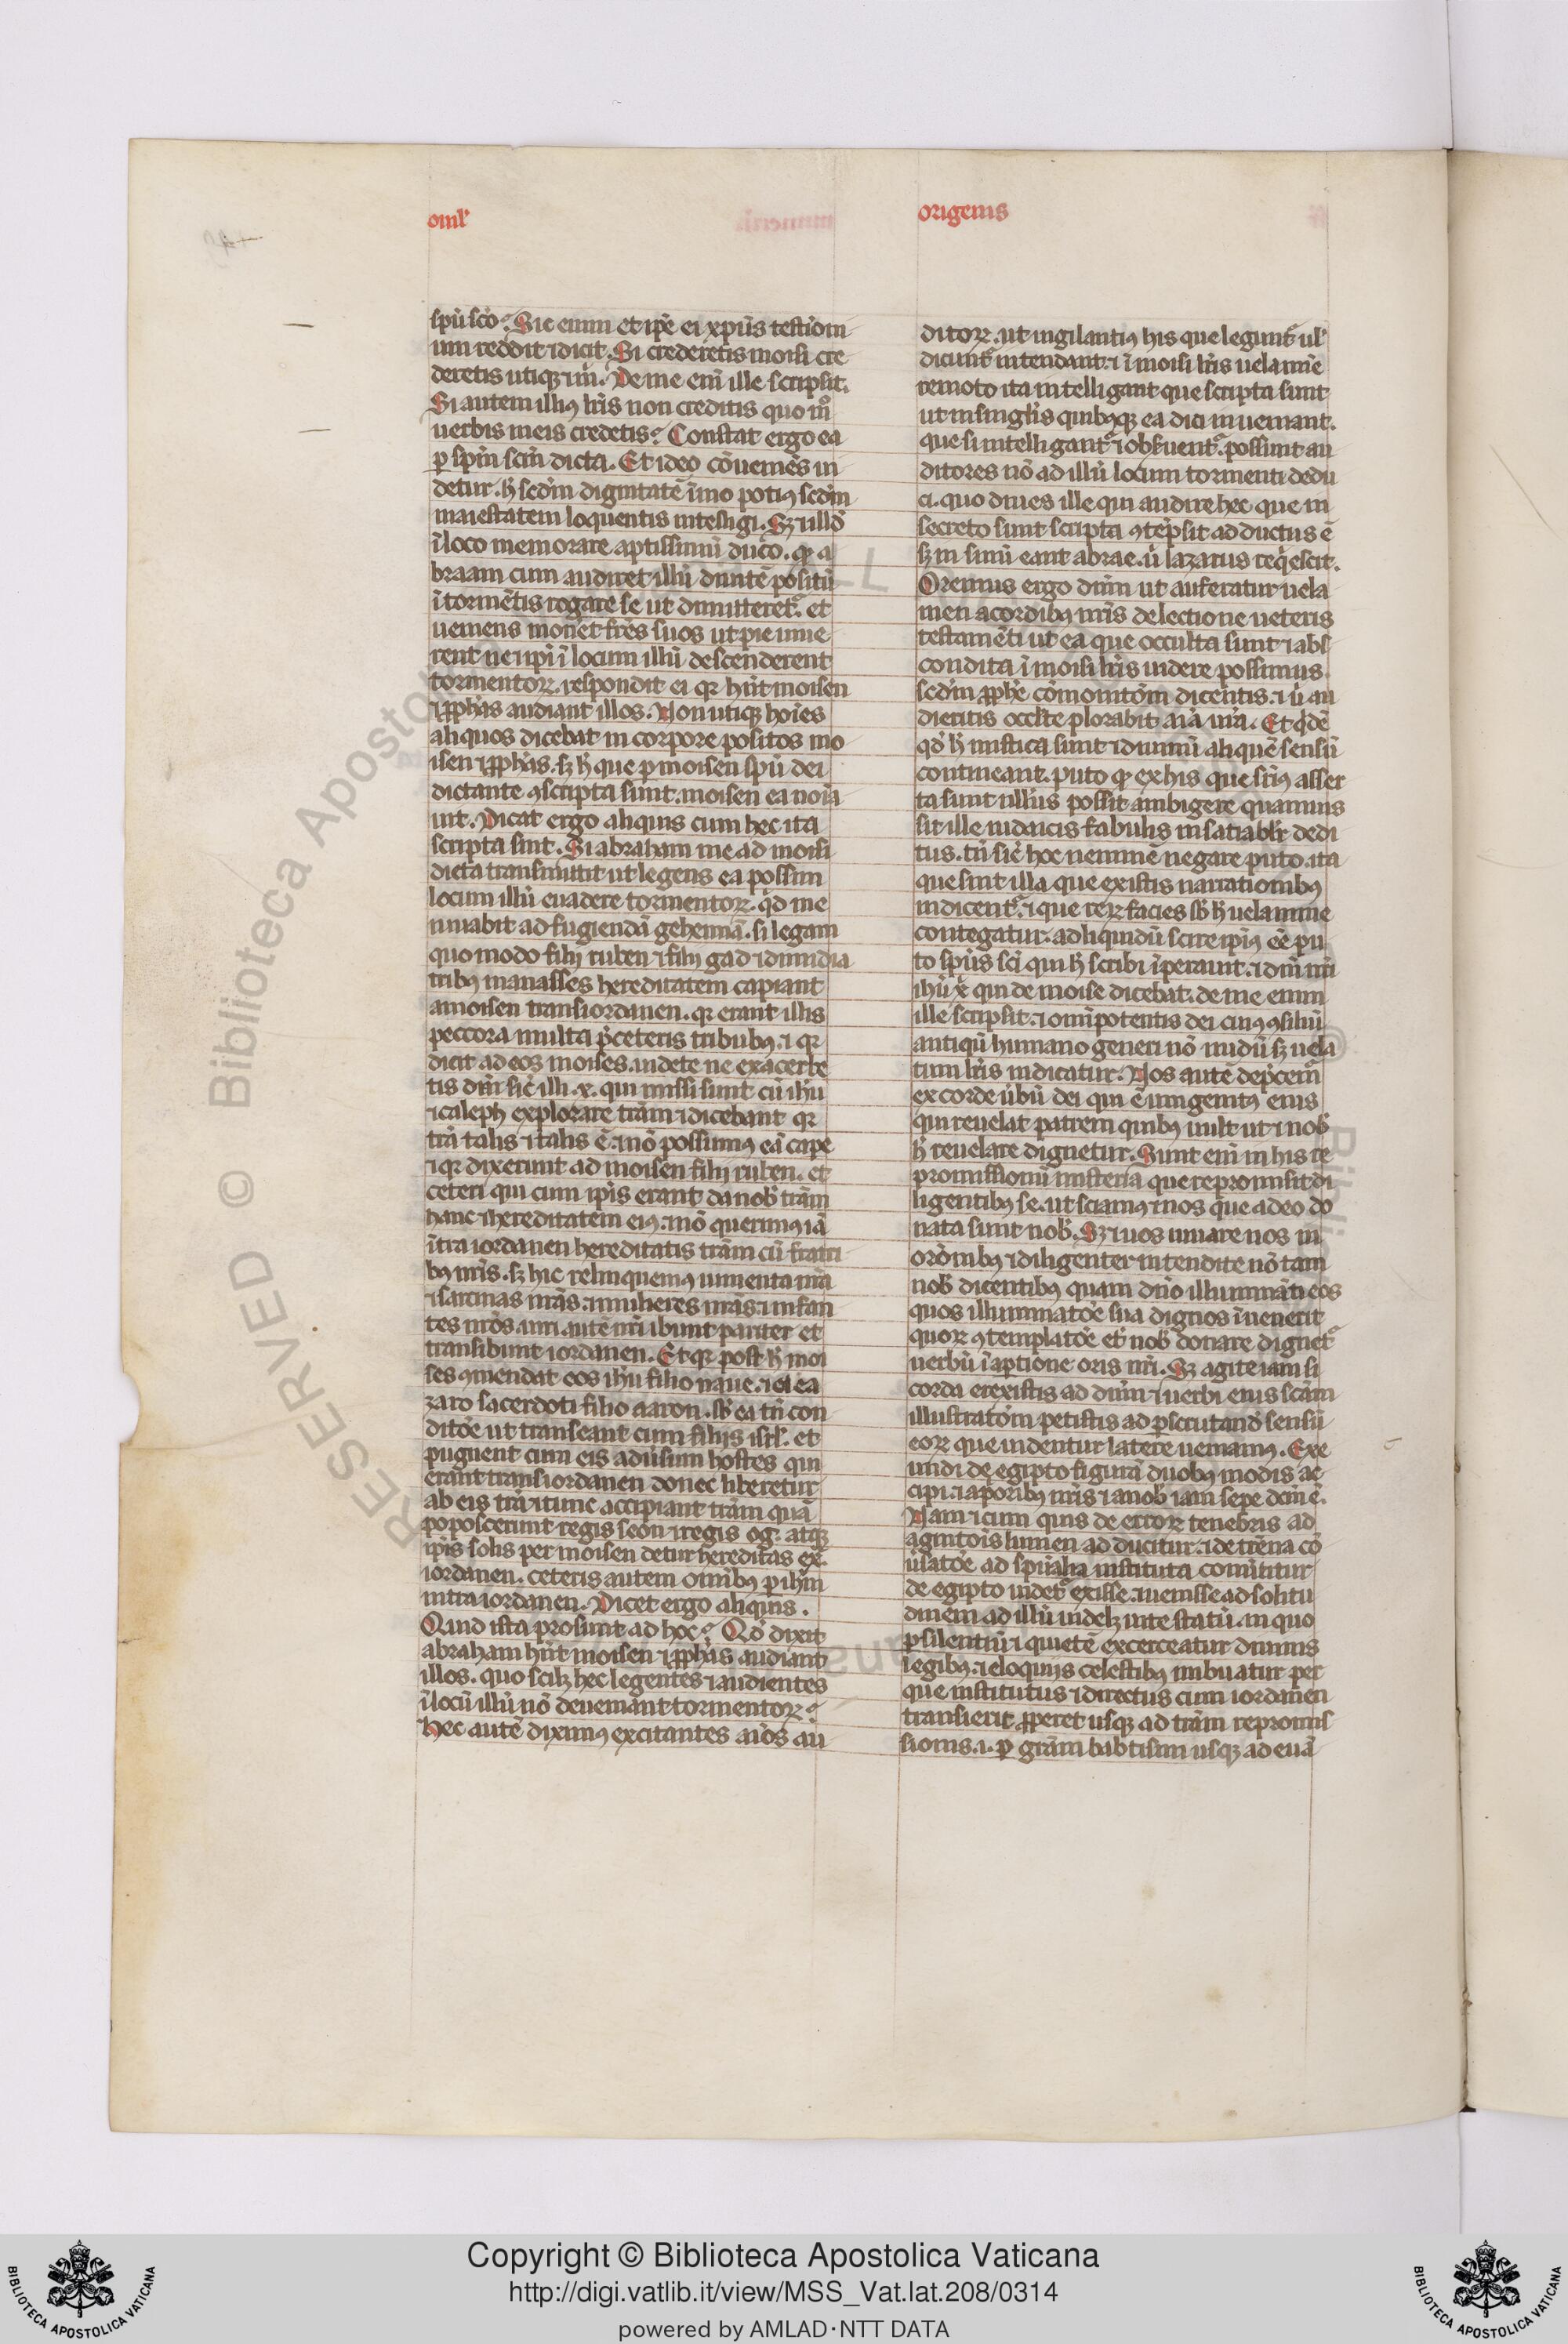 oml'
origenis
spū sc̄o? Sic enim et ip̄e ei xp̄us testiōm
um reddit ⁊ dicit. Si crederetis moisi cre
deretis utiqꝫ ⁊ m̄. De me eni ille scripsit.
Si autem illiꝰ lr̄is non creditis quo mͦ
uerbis meis credetis? Constat ergo ea
ꝑ spm̄ scm̄ dicta. Et ideo cōueniēs ui
detur. h̄ sedm̄ dignitatē īmo potiꝰ sedm̄
maiestatem loquentis intelligi. Sꝫ ⁊ illd̄
ī loco memorare aptissimū duco. qꝫ a
braam cum audiret illū diuitē positū
ī tormētis rogare se ut dimitteret᷑. et
ueniens moneret fr̄es suos ut pie uiue
rent ne ⁊ ip̄i ī locum illū descenderent
tormentoꝝ. respondit ei qꝛ hn̄t moisen
⁊ ꝓph̄as audiant illos. Non utiqꝫ hoīes
aliquos dicebat in corpore positos mo
isen ⁊ ꝓph̄as. sꝫ h̄ que ꝑ moisen spū dei
dictante ꝯscripta sunt. moisen ea noīa
uit. Dicat ergo aliquis cum hec ita
scripta sint. Si abraham me ad moisi
dicta transmittit ut legens ea possim
locum illū euadere tormentoꝝ. qd̄ me
iuuabit ad fugiendā gehennā. si legam
quo modo filij ruben ⁊ filij gad ⁊ dimidia
tribꝰ manasses hereditatem capiant
a moisen trans iordanen. qꝛ erant illis
peccora multa p̄ ceteris tribubꝰ. ⁊ qꝛ
dicit ad eos moises. uidete ne exacerbe
tis dn̄m sic̄ illi .x. qui missi sunt cū ihū
⁊ caleph explorare trām ⁊ dicebant qꝛ
trā talis ⁊ talis ē. ⁊ nō possumꝰ eā cape
⁊ qꝛ dixerunt ad moisen filij ruben. et
ceteri qui cum ip̄is erant da nob̄ trām
hanc ⁊ hereditatem eiꝰ. ⁊ nō querimꝰ iā
ītra iordanen hereditatis trām cū fratri
bꝰ nr̄is. sꝫ hic relinquemꝰ iumenta nr̄a
⁊ sarcinas nr̄as. ⁊ mulieres nr̄as. ⁊ infan
tes nr̄os. uiri autē nr̄i ibunt pariter et
transibunt iordanen. Et qꝛ post h̄ moi
ses ꝯmendat eos ihū filio naue. ⁊ el ea
zaro sacerdoti filio aaron. sb̄ ea tn̄ con
ditōe ut transeant cum filijs isrl'. et
pugnent cum eis aduersum hostes qui
erant trans iordanen donec liberetur
ab eis trā ⁊ tunc accipiant trām quā
poposcerunt regis seon ⁊ regis og. atqꝫ
ip̄is solis per moisen detur hereditas ex̄
iordanen. ceteris autem omībꝰ ꝑ ihm̄
intra iordanen. Dicet ergo aliquis.
Quid ista prosunt ad hoc? Qd̄ dixit
abraham hn̄t moisen ⁊ ꝓph̄as audiant
illos. quo scilꝫ hec legentes ⁊ audientes
ī locū illū nō deueniant tormentoꝝ?
Hec autē diximꝰ excitantes aīos au
ditoꝝ. ut uigilantiꝰ his que legunt᷑ ul'
dicunt᷑ intendant. ⁊ ī moisi lr̄is uelamīe
remoto ita intelligant que scripta sunt
ut in singlis quibꝰqꝫ ea dici inueniant.
que si intelligant᷑ ⁊ obseruent᷑. possunt au
ditores nō ad illū locum tormenti dedu
ci. quo diues ille qui audire hec que in
secreto sunt scripta ꝯtēpsit adductus ē
sꝫ in sinū eant abrae. ū lazarus reqͥescit.
Oremus ergo dn̄m ut auferatur uela
men a cordibꝰ nr̄is de lectione ueteris
testamēti ut ea que occulta sunt ⁊ abs
condita ī moisi lr̄is uidere possimus.
sedm̄ ꝓph̄e cōmonitōm dicentis. ⁊ ū au
dieritis occl'te plorabit aīa ur̄a. Et qͥdē
qd̄ h̄ mistica sunt ⁊ diuinū aliquē sensū
contineant. puto qꝫ ex his que sr̄iꝰ asser
ta sunt nullus possit ambigere quamuis
sit ille iudaicis fabulis insatiabl'r dedi
tus. tn̄ sic̄ hoc neminē negare puto. ita
que sint illa que ex istis narrationibꝰ
indicent᷑. ⁊ que reꝝ facies sb̄ h̄ uelamine
contegatur. ad liquidū scire ip̄iꝰ eē pu
to spūs sc̄i qui h̄ scribi īperauit. ⁊ dn̄i nr̄i
ihū x̄ qui de moise dicebat. de me enim
ille scripsit. ⁊ omīpotentis dei cuiꝰ ꝯsiliū
antiqū humano generi nō nudū sꝫ uela
tum lr̄is indicatur. Nos autē dep̄cem᷑
ex corde ūbū dei qui ē unigenitꝰ eius
qui reuelat patrem quibꝰ uult ut ⁊ nob̄
h̄ reuelare dignetur. Sunt eni in his re
promissionū misteria que repromisit di
ligentibꝰ se. ut sciamꝰ ⁊ nos que a deo do
nata sunt nob̄. Sꝫ ⁊ uos iuuare nos in
orōnibꝰ ⁊ diligenter intendite nō tam
nob̄ dicentibꝰ quam dn̄o illuminanti eos
quos illuminatōe sua dignos īuenerit
quoꝝ ꝯtemplatōe et nob̄ donare dignet᷑
uerbū ī aptione oris nr̄i. Sꝫ agite iam si
corda erexistis ad dn̄m ⁊ uerbi eius scām
illustratōm petistis ad ꝑscrutand̄ sensū
eoꝝ que uidentur latere ueniamꝰ. Exe
undi de egipto figurā duobꝰ modis ac
cipi. ⁊ a p̄oribꝰ nr̄is ⁊ a nob̄ iam sepe dcm̄ ē.
Nam ⁊ cum quis de erroꝝ tenebris ad
agnitōis lumen adducitur. ⁊ de trēna cō
ūsatōe ad spūalia instituta comittitur
de egipto uidet᷑ exisse. ⁊ uenisse ad solitu
dinem ad illū uidelꝫ uite statū. in quo
ꝑ silentiū ⁊ quietē excerceatur diuinis
legibꝰ. ⁊ eloquijs celestibꝰ imbuatur per
que institutus ⁊ directus cum iordanen
transierit ꝓperet usqꝫ ad trām repromis
sionis .i. ꝑ grām babtismi usqꝫ ad euā
RESERVED © Biblioteca Apostolica
Copyright © Biblioteca Apostolica Vaticana
http://digi.vatlib.it/view/MSS_Vat.lat.208/0314
powered by AMLAD·NTT DATA
BIBLIOTECA APOSTOLICA VATICANA
BIBLIOTECA APOSTOLICA VATICANA